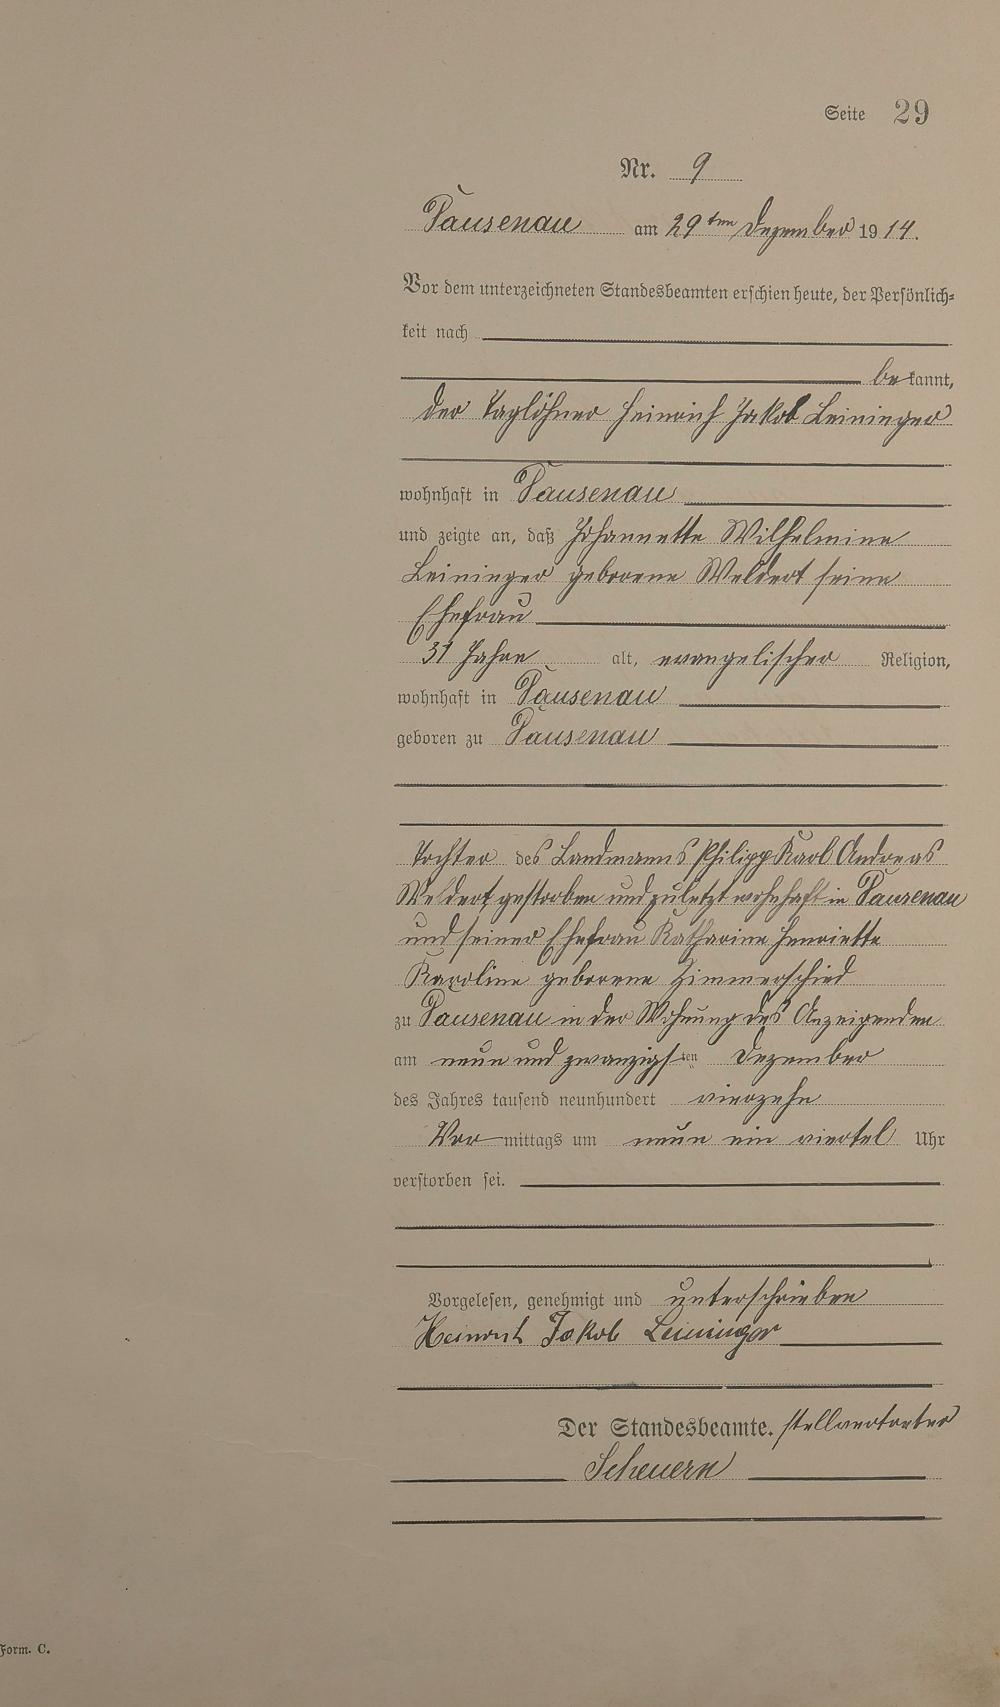 Seite 29
Nr. 9
Pausenau am 29ten Dezember 1914.
Vor dem unterzeichneten Standesbeamten erschien heute, der Persönlich-
keit nach
bekannt,
der Taglöhner Heinrich Jakob Leininger
wohnhaft in Pausenau
und zeigte an, daß Johannette Wilhelmine
Leininger geborene Weldert seine
Ehefrau
31 Jahre alt, evangelischer Religion,
wohnhaft in Pausenau
geboren zu Pausenau
Tochter des Landmanns Philipp Karl Andreas
Weldert gestorben und zuletzt wohnhaft in Pausenau
und seiner Ehefrau Katharine Henriette
Karoline geborene Zimmerschied
zu Pausenau in der Wohnung des Anzeigenden
am neun und zwanzigsten Dezember
des Jahres tausend neunhundert vierzehn
Vormittags um neun ein viertel Uhr
verstorben sei.
Vorgelesen, genehmigt und unterschrieben
Heinrich Jakob Leininger
Der Standesbeamte. stellvertreter
Scheuern
Form. C.